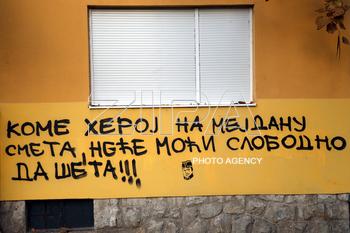 ZIPA
КОМЕ ХЕРОЈ НА МЕЈДАНУ
СМЕТА, НЕЋЕ МОЋИ СЛОБОДНО
PHOTO AGENCY
ДА ШЕТА!!!